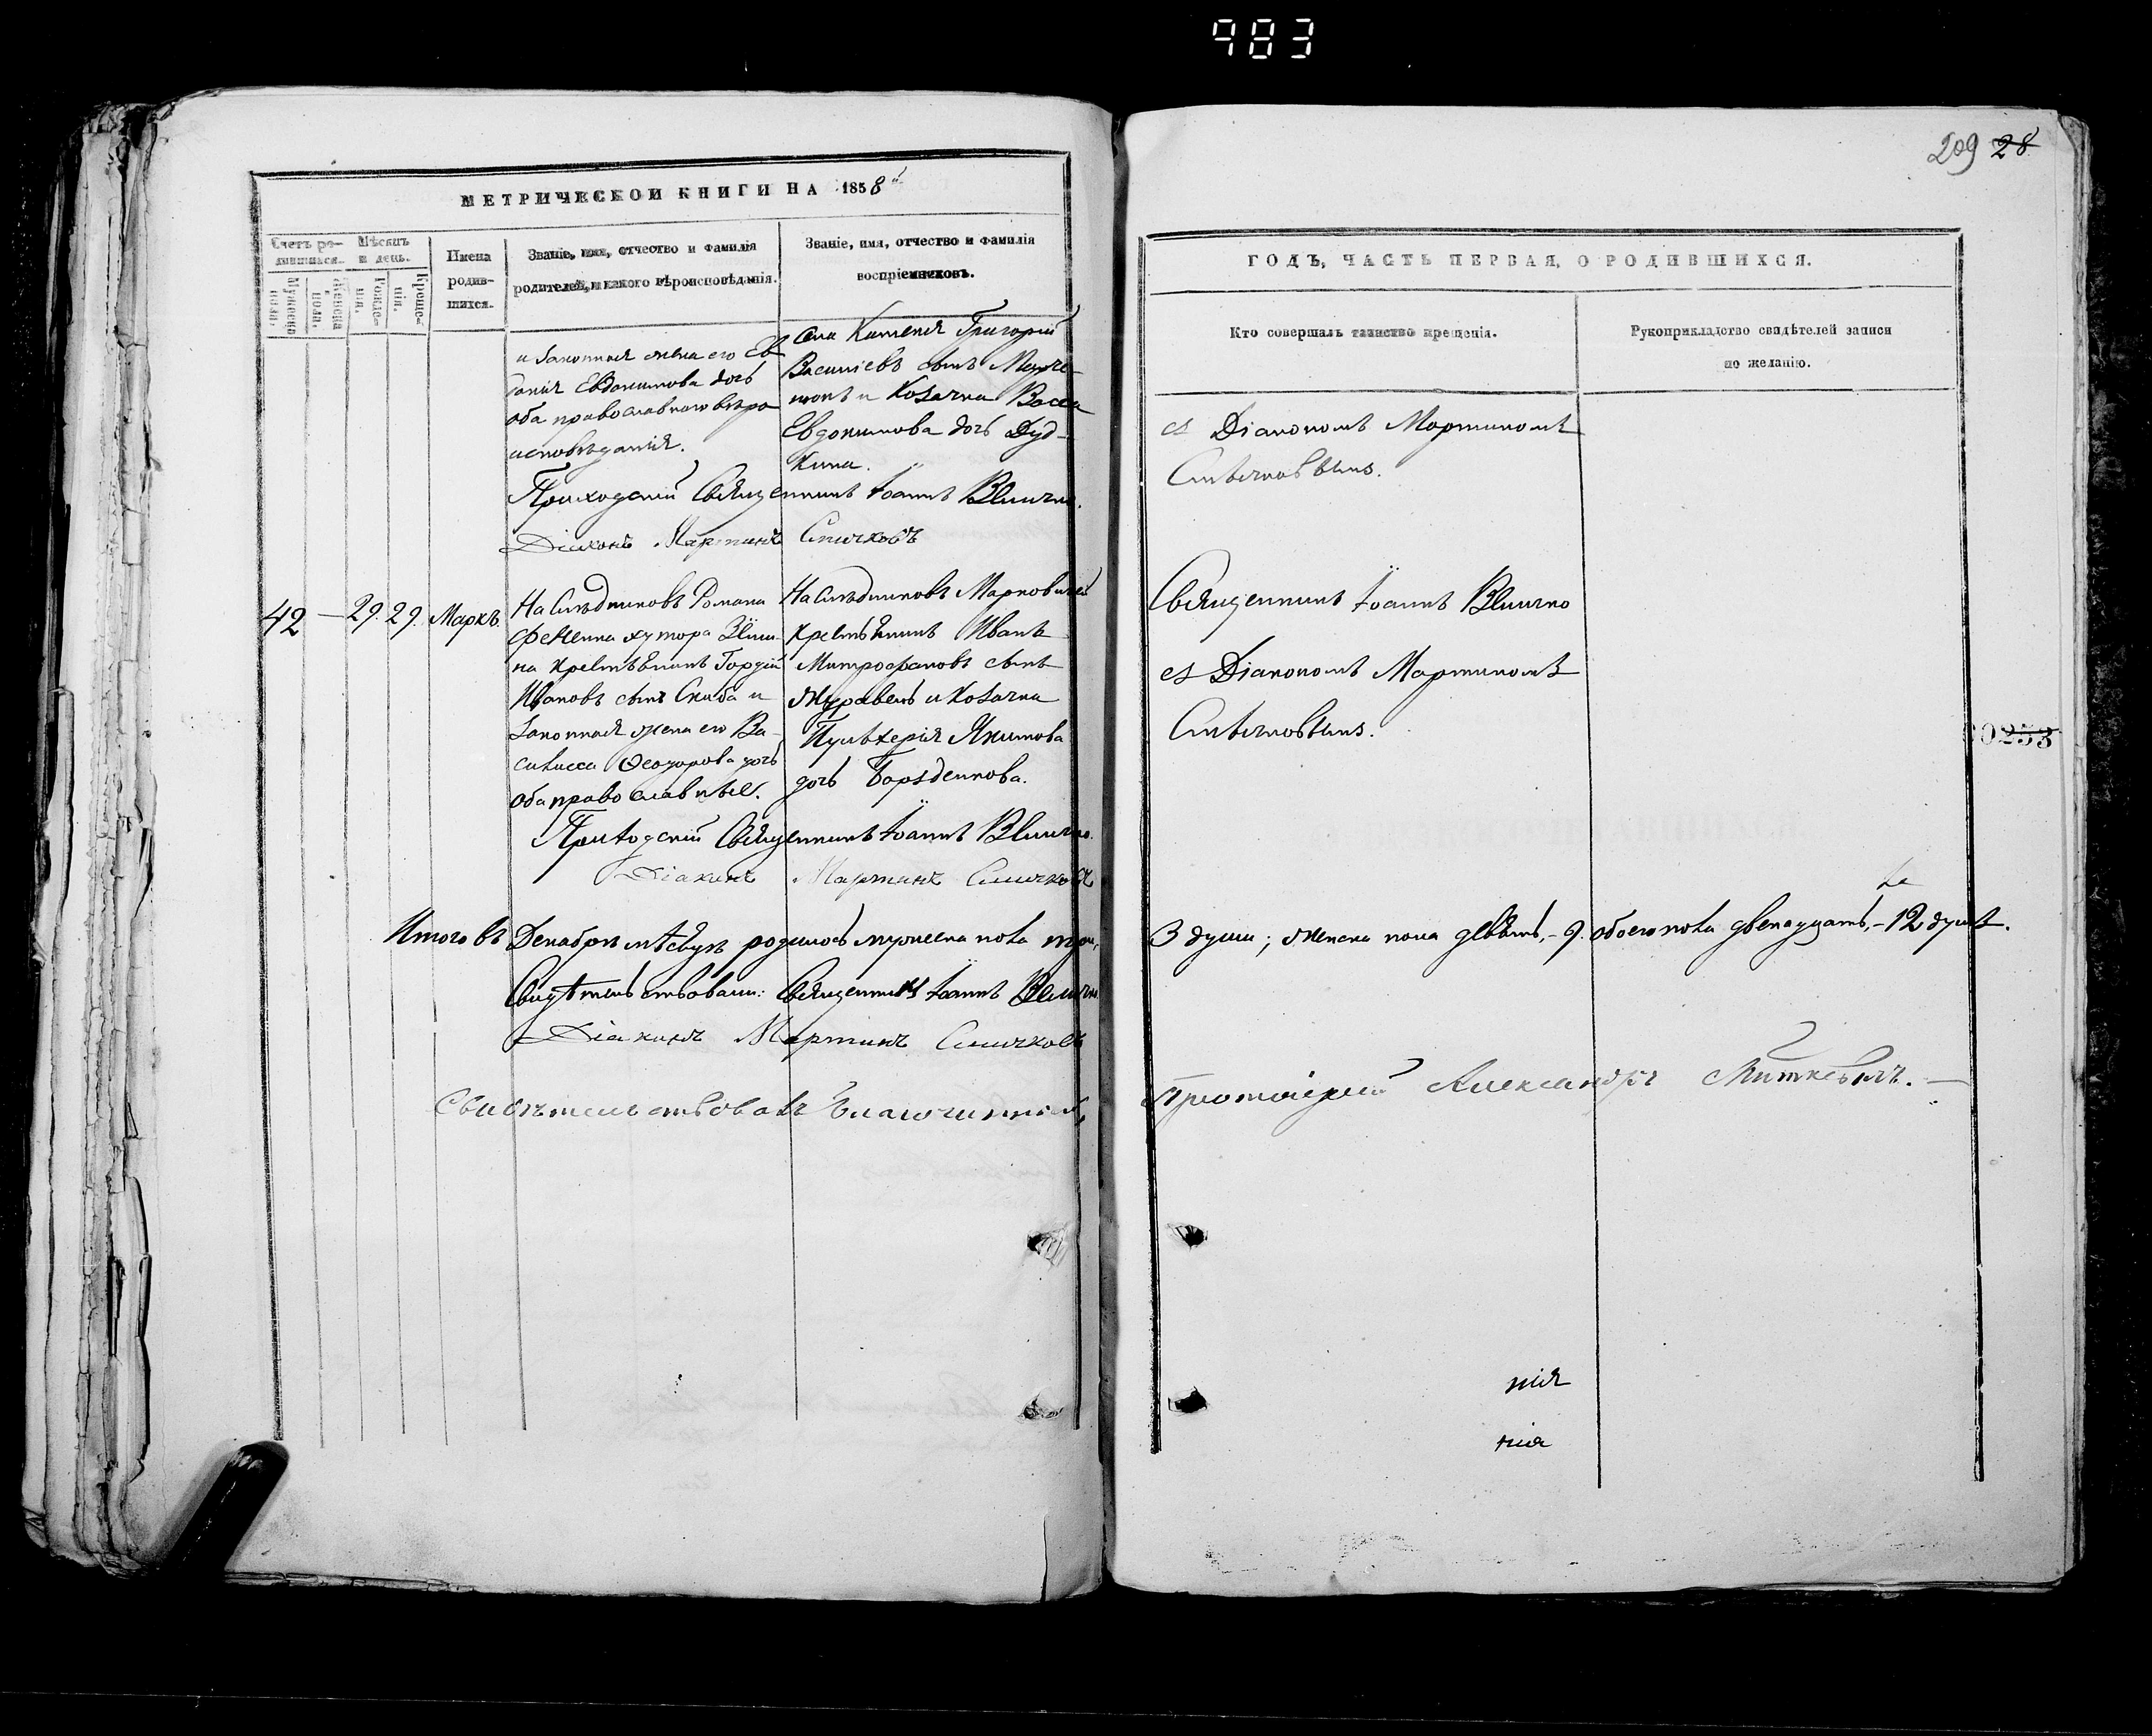 983
209 28
МЕТРИЧЕСКОЙ КНИГИ НА 1858й
Счетъ родившихся.
Мѣсяцъ и день.
Имена родившихся.
Званіе, имя, отчество и фамилія
родителей, и какого вѣроисповѣданія.
Званіе, имя, отчество и фамилія
воспріемниковъ.
Мужеска пола.
Женска пола.
Рожденія.
Крещенія.
и законная жена его Ев
Евдокимова дочь
оба православнаго вѣро
исповѣданія.
села Каменя Григорій
Василіевъ сынъ
и Козачка Васса
Евдокимова дочь Дуд-
кина.
Приходскій Священникъ Іоаннъ Величко.
Діаконъ Мартинъ Спичковъ
42 — 29. 29. Маркъ.
Наслѣдниковъ Романа
хутора
на крестьянинъ Гордій
Ивановъ сынъ Скиба и
законная жена его Ва-
силисса Ѳеодорова дочь
оба православные.
Наслѣдниковъ Марковичей
крестьянинъ Иванъ
Митрофановъ сынъ
Журавель и Козачка
Пульхерія Якимова
дочь
Приходскій Священникъ Іоаннъ Величко.
Діаконъ Мартинъ Спичковъ
Итого въ Декабрѣ мѣсяцѣ родилось мужеска пола три,
Свидѣтельствовали: Священникъ Іоаннъ Величко.
Діаконъ Мартинъ Спичковъ
Свидѣтельствовалъ Благочинный,
ГОДЪ, ЧАСТЬ ПЕРВАЯ, О РОДИВШИХСЯ.
Кто совершалъ таинство крещенія.
Рукоприкладство свидѣтелей записи
по желанію.
съ Діакономъ Мартиномъ
Спичковымъ.
Священникъ Іоаннъ Величко
съ Діакономъ Мартиномъ
Спичковымъ.
0253
3 души; женска пола девять, – 9. обоего пола двенадцать, – 12 душъ.
Протоіерей Александръ
нія
нія